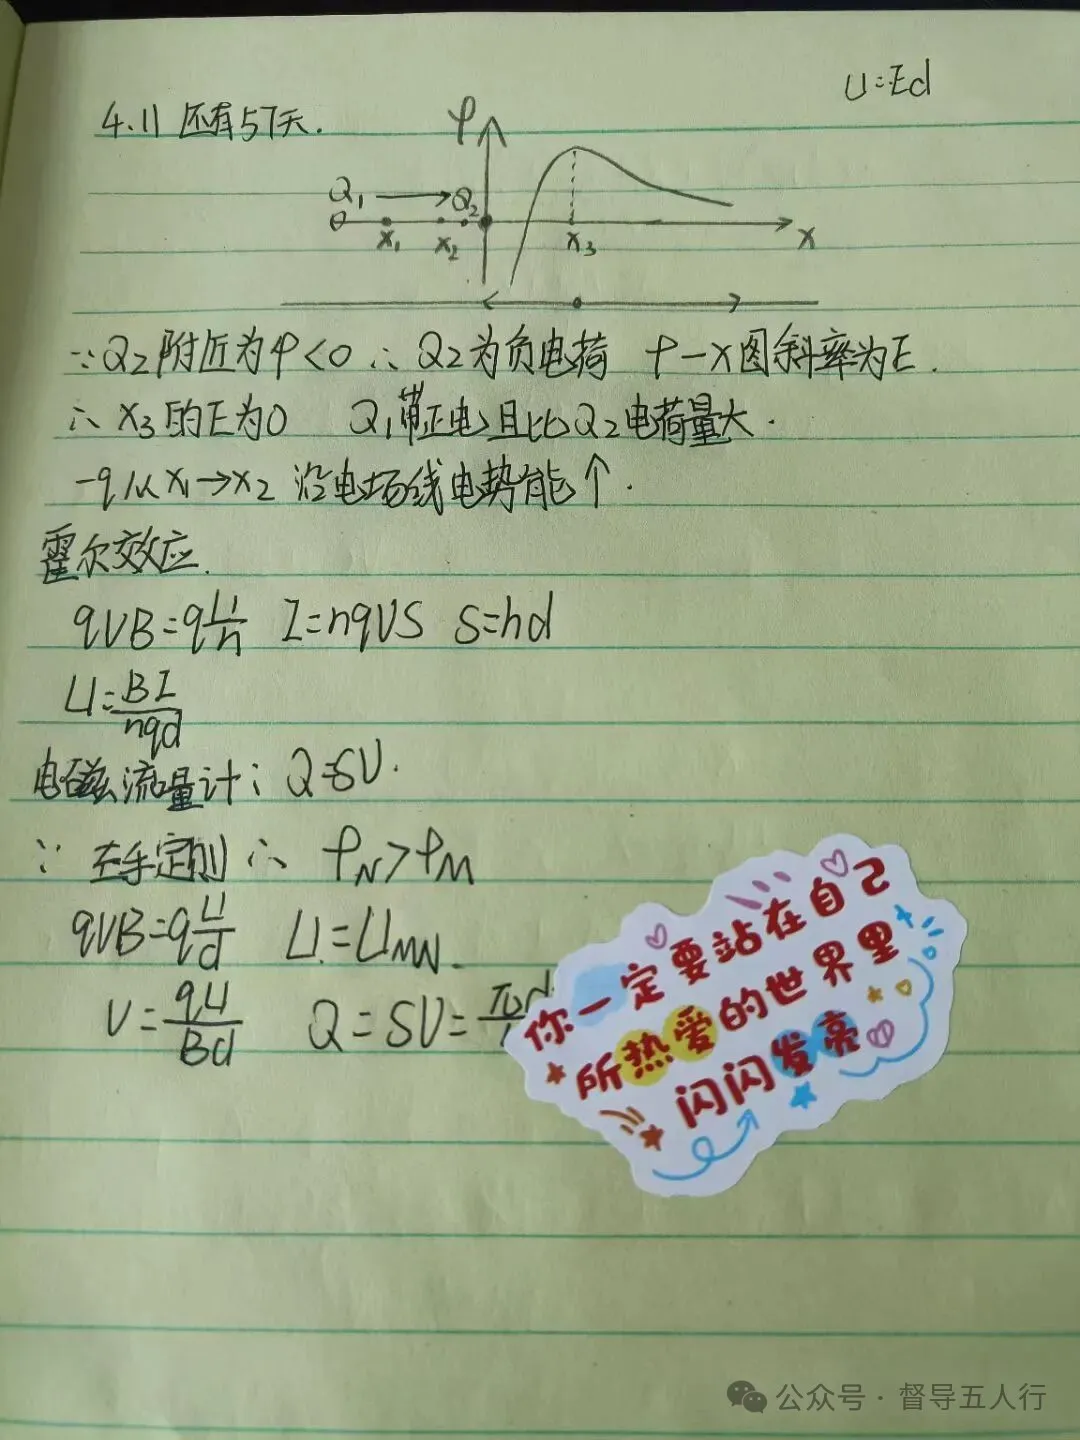 U=Ed
4.11 还有57天.
φ
Q₁ → Q₂
x₁ x₂ x₃ x
∵Q₂附近为φ<0 ∴Q₂为负电荷 φ-x图斜率为E.
∴x₃的E为0 Q₁带正电且比Q₂电荷量大.
-q从x₁→x₂ 沿电场线电势能↑.
霍尔效应.
qVB=q\frac{U}{h} I=nqVS S=hd
U=\frac{BI}{nqd}
电磁流量计: Q=SV.
∵左手定则 ∴φN>φM
qVB=q\frac{U}{d} U=UMN.
V=\frac{qU}{Bd} Q=SV=
你一定要站在自己
所热爱的世界里
闪闪发亮
公众号·督导五人行